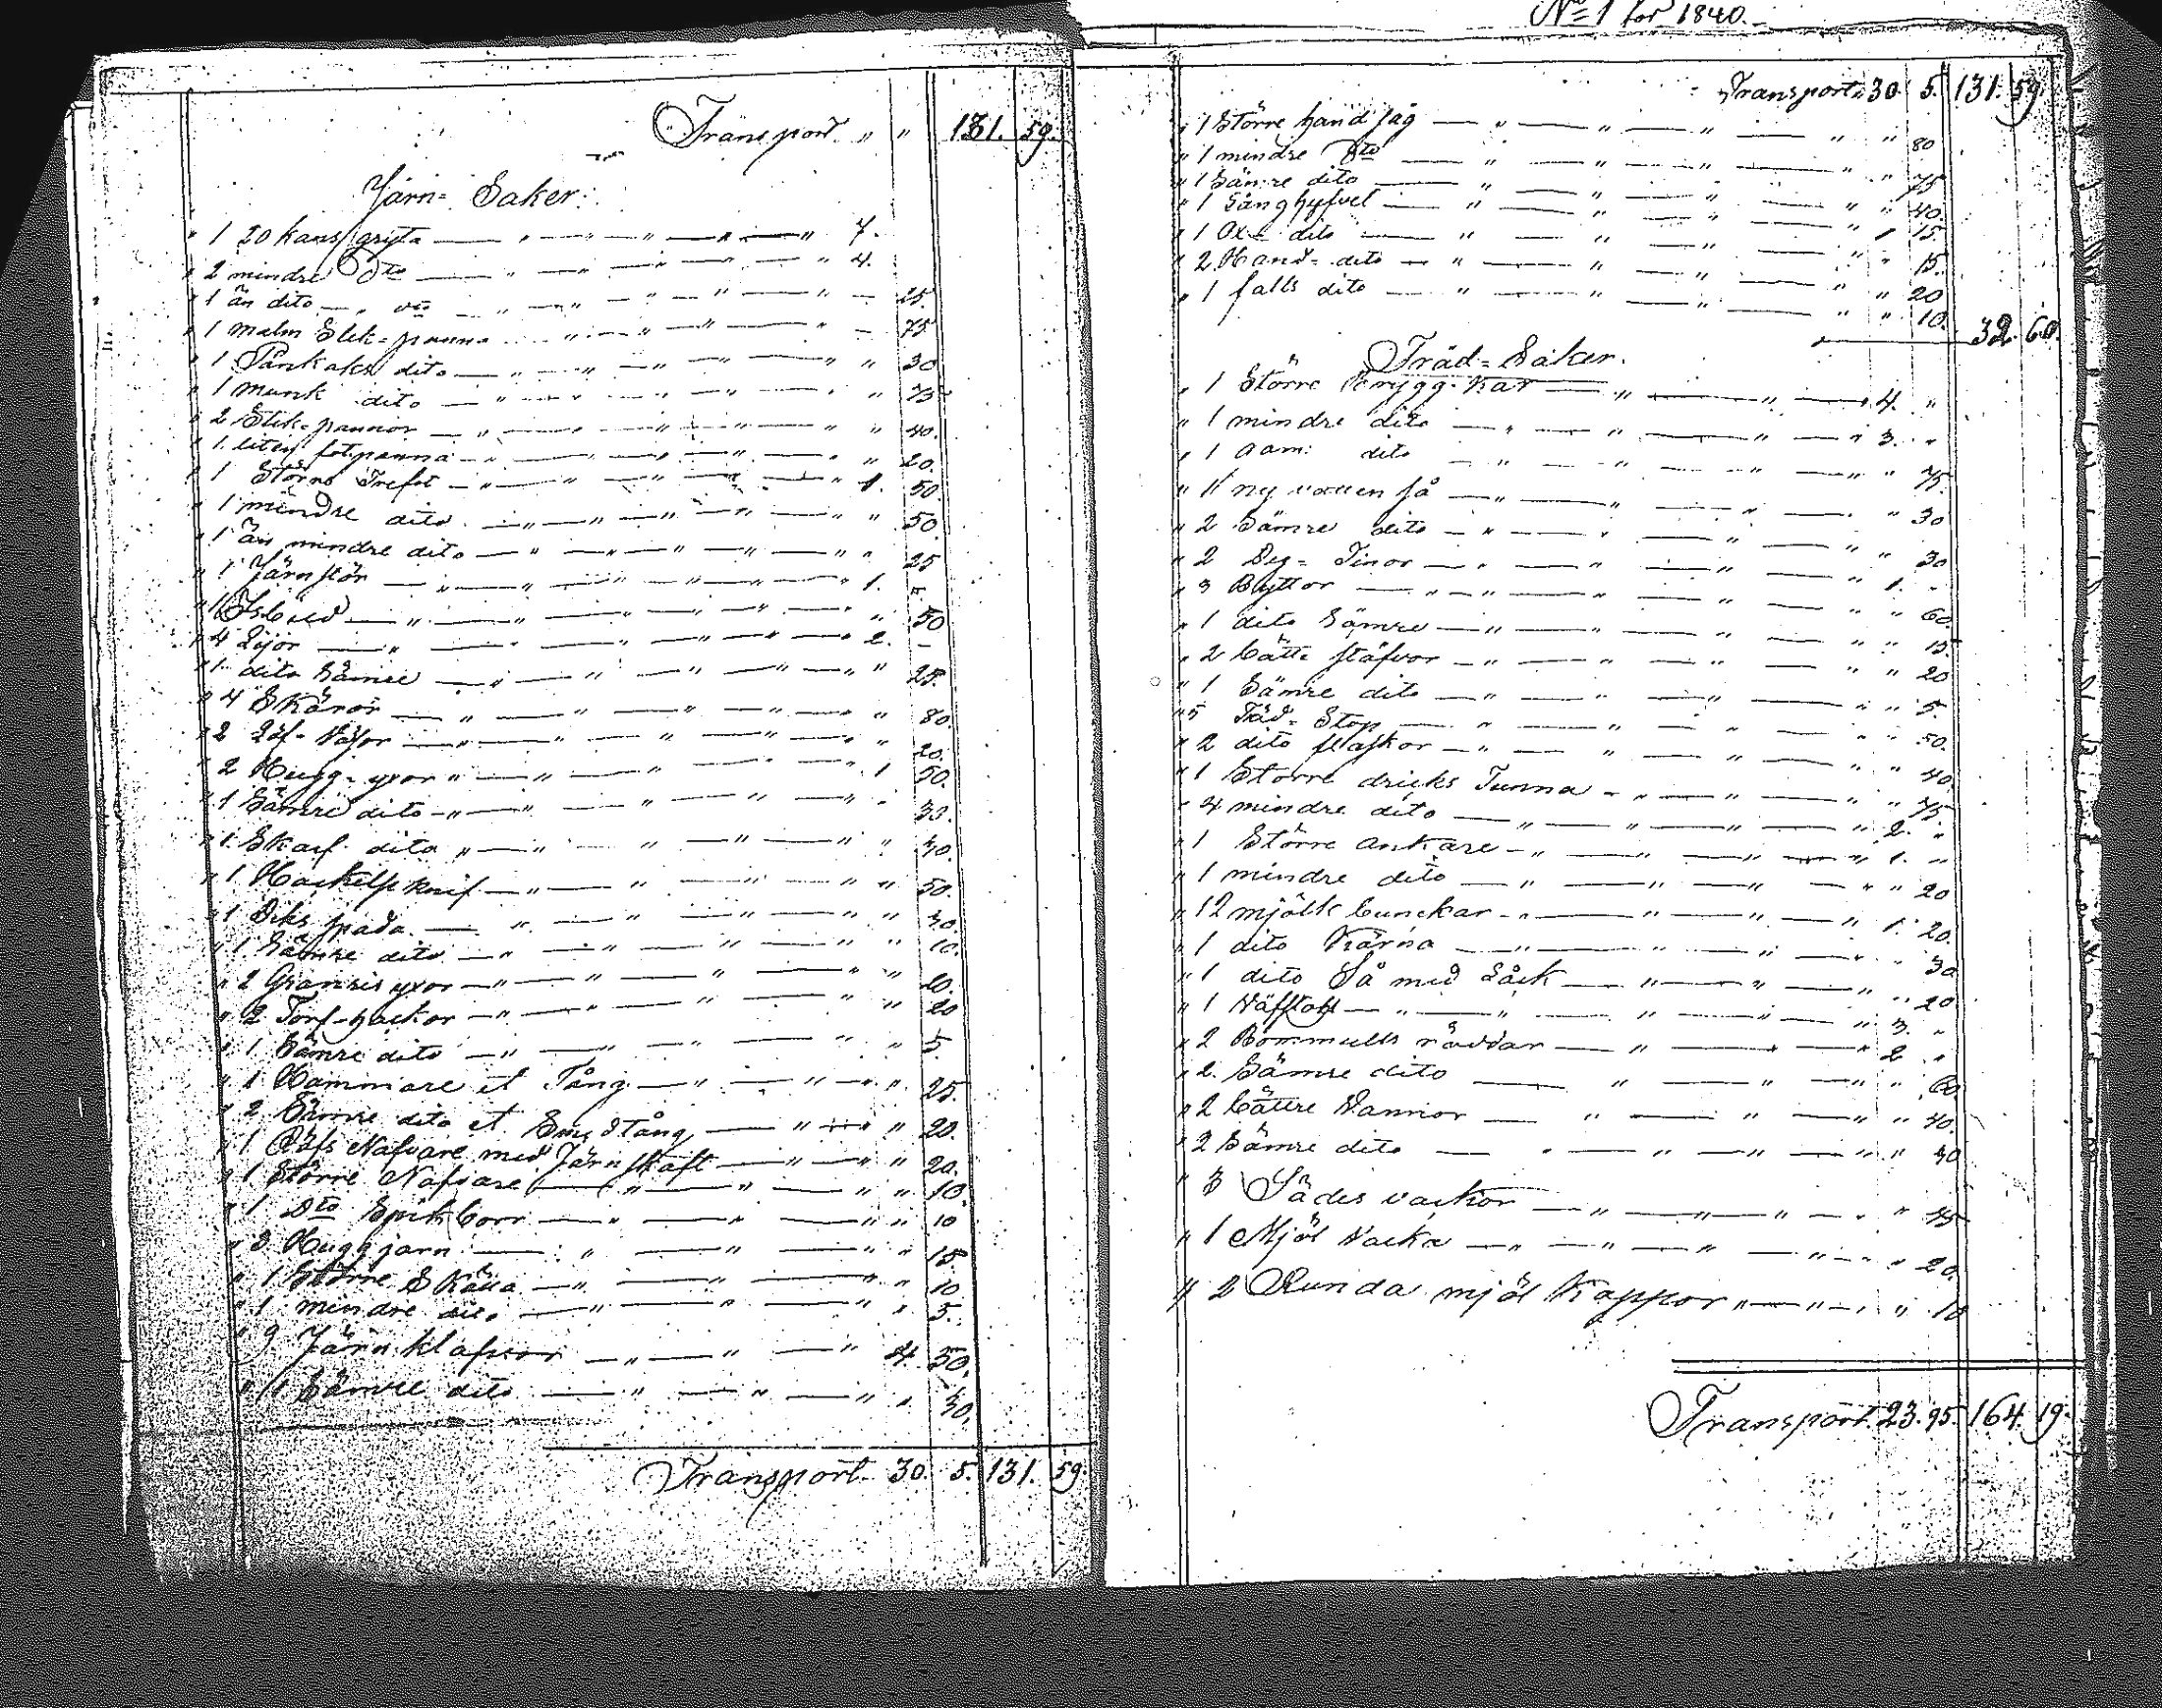 Transport " " 131. 59.
Järn= Saker:
" 1 20 kans grÿta — " — " — " — " — " 7.
" 2 mindre Dto — " — " — " — " — " 4.
" 1 än dito — " — " — " — " — 25.
" 1 malm Stek=panna — " — " — " — " — 75.
" 1 Pänkaks dito — " — " — " — " — " " 30
" 1 munk dito — " — " — " — " " 75
" 2 Stek=pannor — " — " — " — " — " " 40.
" 1. liten fotpanna — " — " — " — " " 20.
" 1 Större Trefot — " — " — " — " — " 1. 50.
" 1 mindre dito — " — " — " — " — " " 50.
" 1 än mindre dito — " — " — " — " — " " 25
" 1 Järnstör — " — " — " — " — " 1. "
" 1 Isbill — " — " — " — " — " " 50
" 4 Lijor — " — " — " — " — " 2. –
" 1 dito Sämre — " — " — " — " — " " 25.
" 4 Skäror — " — " — " — " — " " 80.
" 2 Löf-käsor — " — " — " — " — " " 20.
" 2 Hugg-yxor " — " — " — " — " 1 50.
" 1 Sämre dito — " — " — " — " — " " 30.
" 1 Skarf dito " — " — " — " — " " 40.
" 1 Hackelse knif — " — " — " — " " 50.
" 1 Diks spada — " — " — " — " " 40.
" 1 Sämre dito — " — " — " — " " 10.
" 2 Granris yxor — " — " — " — " " 20.
" 2 Torf-hackor — " — " — " — " " 20
" 1 Sämre dito — " — " — " — " " 5
" 1 Hammare et Tång — " — " — " 25.
" 2 Sämre dito et Smedtång — " — " 20.
" 1 Räfs Nafvare med Järnskaft — " — " " 20.
" 1 Större Nafvare — " — " — " " 10.
" 1 Dto Spik borr — " — " — " " 10
" 3 Huggjarn — " — " — " " 15
" 1 Större Skälla — " — " — " " 10
" 1 mindre dito — " — " — " " 5.
" 9 Järn klafvor — " — " — " 4. 50.
" 11 Sämre dito — " — " — " " 30.
Transport. 30. 5. 131. 59.
No 1 for 1840.
Transport " 30. 5. 131. 59.
" 1 Större handsåg — " — " — " — " " 80
" 1 mindre Dto — " — " — " — " " 75
" 1 Sämre dito — " — " — " — " " 40.
" 1 Långhyfvel — " — " — " — " " 15.
" 1 Ox= dito — " — " — " — " " 15.
" 2 Hand= dito — " — " — " — " " 20
" 1 falls dito — " — " — " — " " 10. 32. 60.
Träd=Saker.
" 1 Större Brygg-Kar — " — " — " 4. "
" 1 mindre dito — " — " — " — " 3. "
" 1 aam: dito — " — " — " — " " 75.
" 1 ny vatten så — " — " — " — " " 30
" 2 Sämre dito — " — " — " — " " 30
" 2 Deg= Tinor — " — " — " — " 1. "
" 3 Byttor — " — " — " — " " 60.
" 1 dito Sämre — " — " — " — " " 15.
" 2 bätt: stäfvor — " — " — " — " " 20
" 1 Sämre dito — " — " — " — " " 5.
" 5 Träd= Stop — " — " — " — " " 50.
" 2 dito flaskor — " — " — " — " " 40.
" 1 Större dricks Tunna — " — " — " " 75
" 4 mindre dito — " — " — " — " 2. "
" 1 Större ankare — " — " — " — " 1. "
" 1 mindre dito — " — " — " — " " 20
" 12 mjölk bunckar — " — " — " — " 1. 20.
" 1 dito Kärna — " — " — " — " " 30
" 1 dito Så med Låck — " — " — " " 20
" 1 Väfstoll — " — " — " — " 3. "
" 2 Bommulls råddar — " — " — " 2. "
" 2. Sämre dito — " — " — " " 60
" 2 bättre Vannor — " — " — " " 40.
" 2 Sämre dito — " — " — " " 30
" 3 Sädes vackor — " — " — " — " " 45
" 1 Mjöl Vacka — " — " — " — " " 20.
" 2 Runda mjöl Kappor " — " — " " 10
Transport. 23. 95. 164. 19.